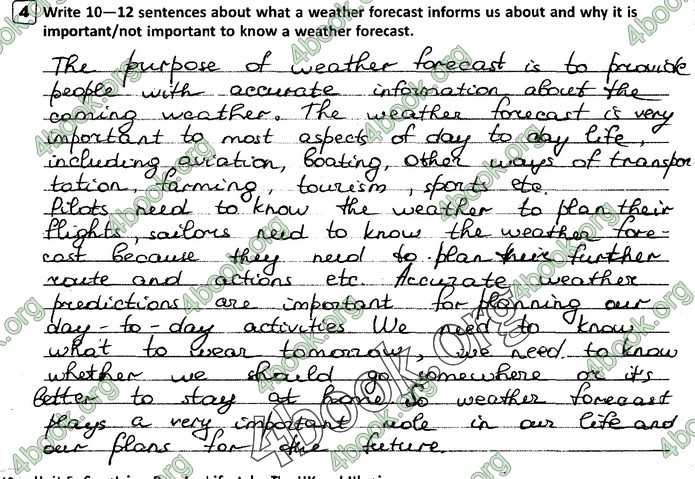 4 Write 10—12 sentences about what a weather forecast informs us about and why it is
important/not important to know a weather forecast.
The purpose of weather forecast is to provide
people with accurate information about the
coming weather. The weather forecast is very
important to most aspects of day to day life,
including aviation, boating, other ways of transpor
tation, farming, tourism, sports etc.
Pilots need to know the weather to plan their
flights, sailors need to know the weather fore-
cast because they need to plan their further
route and actions etc. Accurate weather
predictions are important for planning our
day-to-day activities We need to know
what to wear tomorrow, we need to know
whether we should go somewhere or it's
better to stay at home So weather forecast
plays a very important role in our life and
our plans for the future.
4book.org